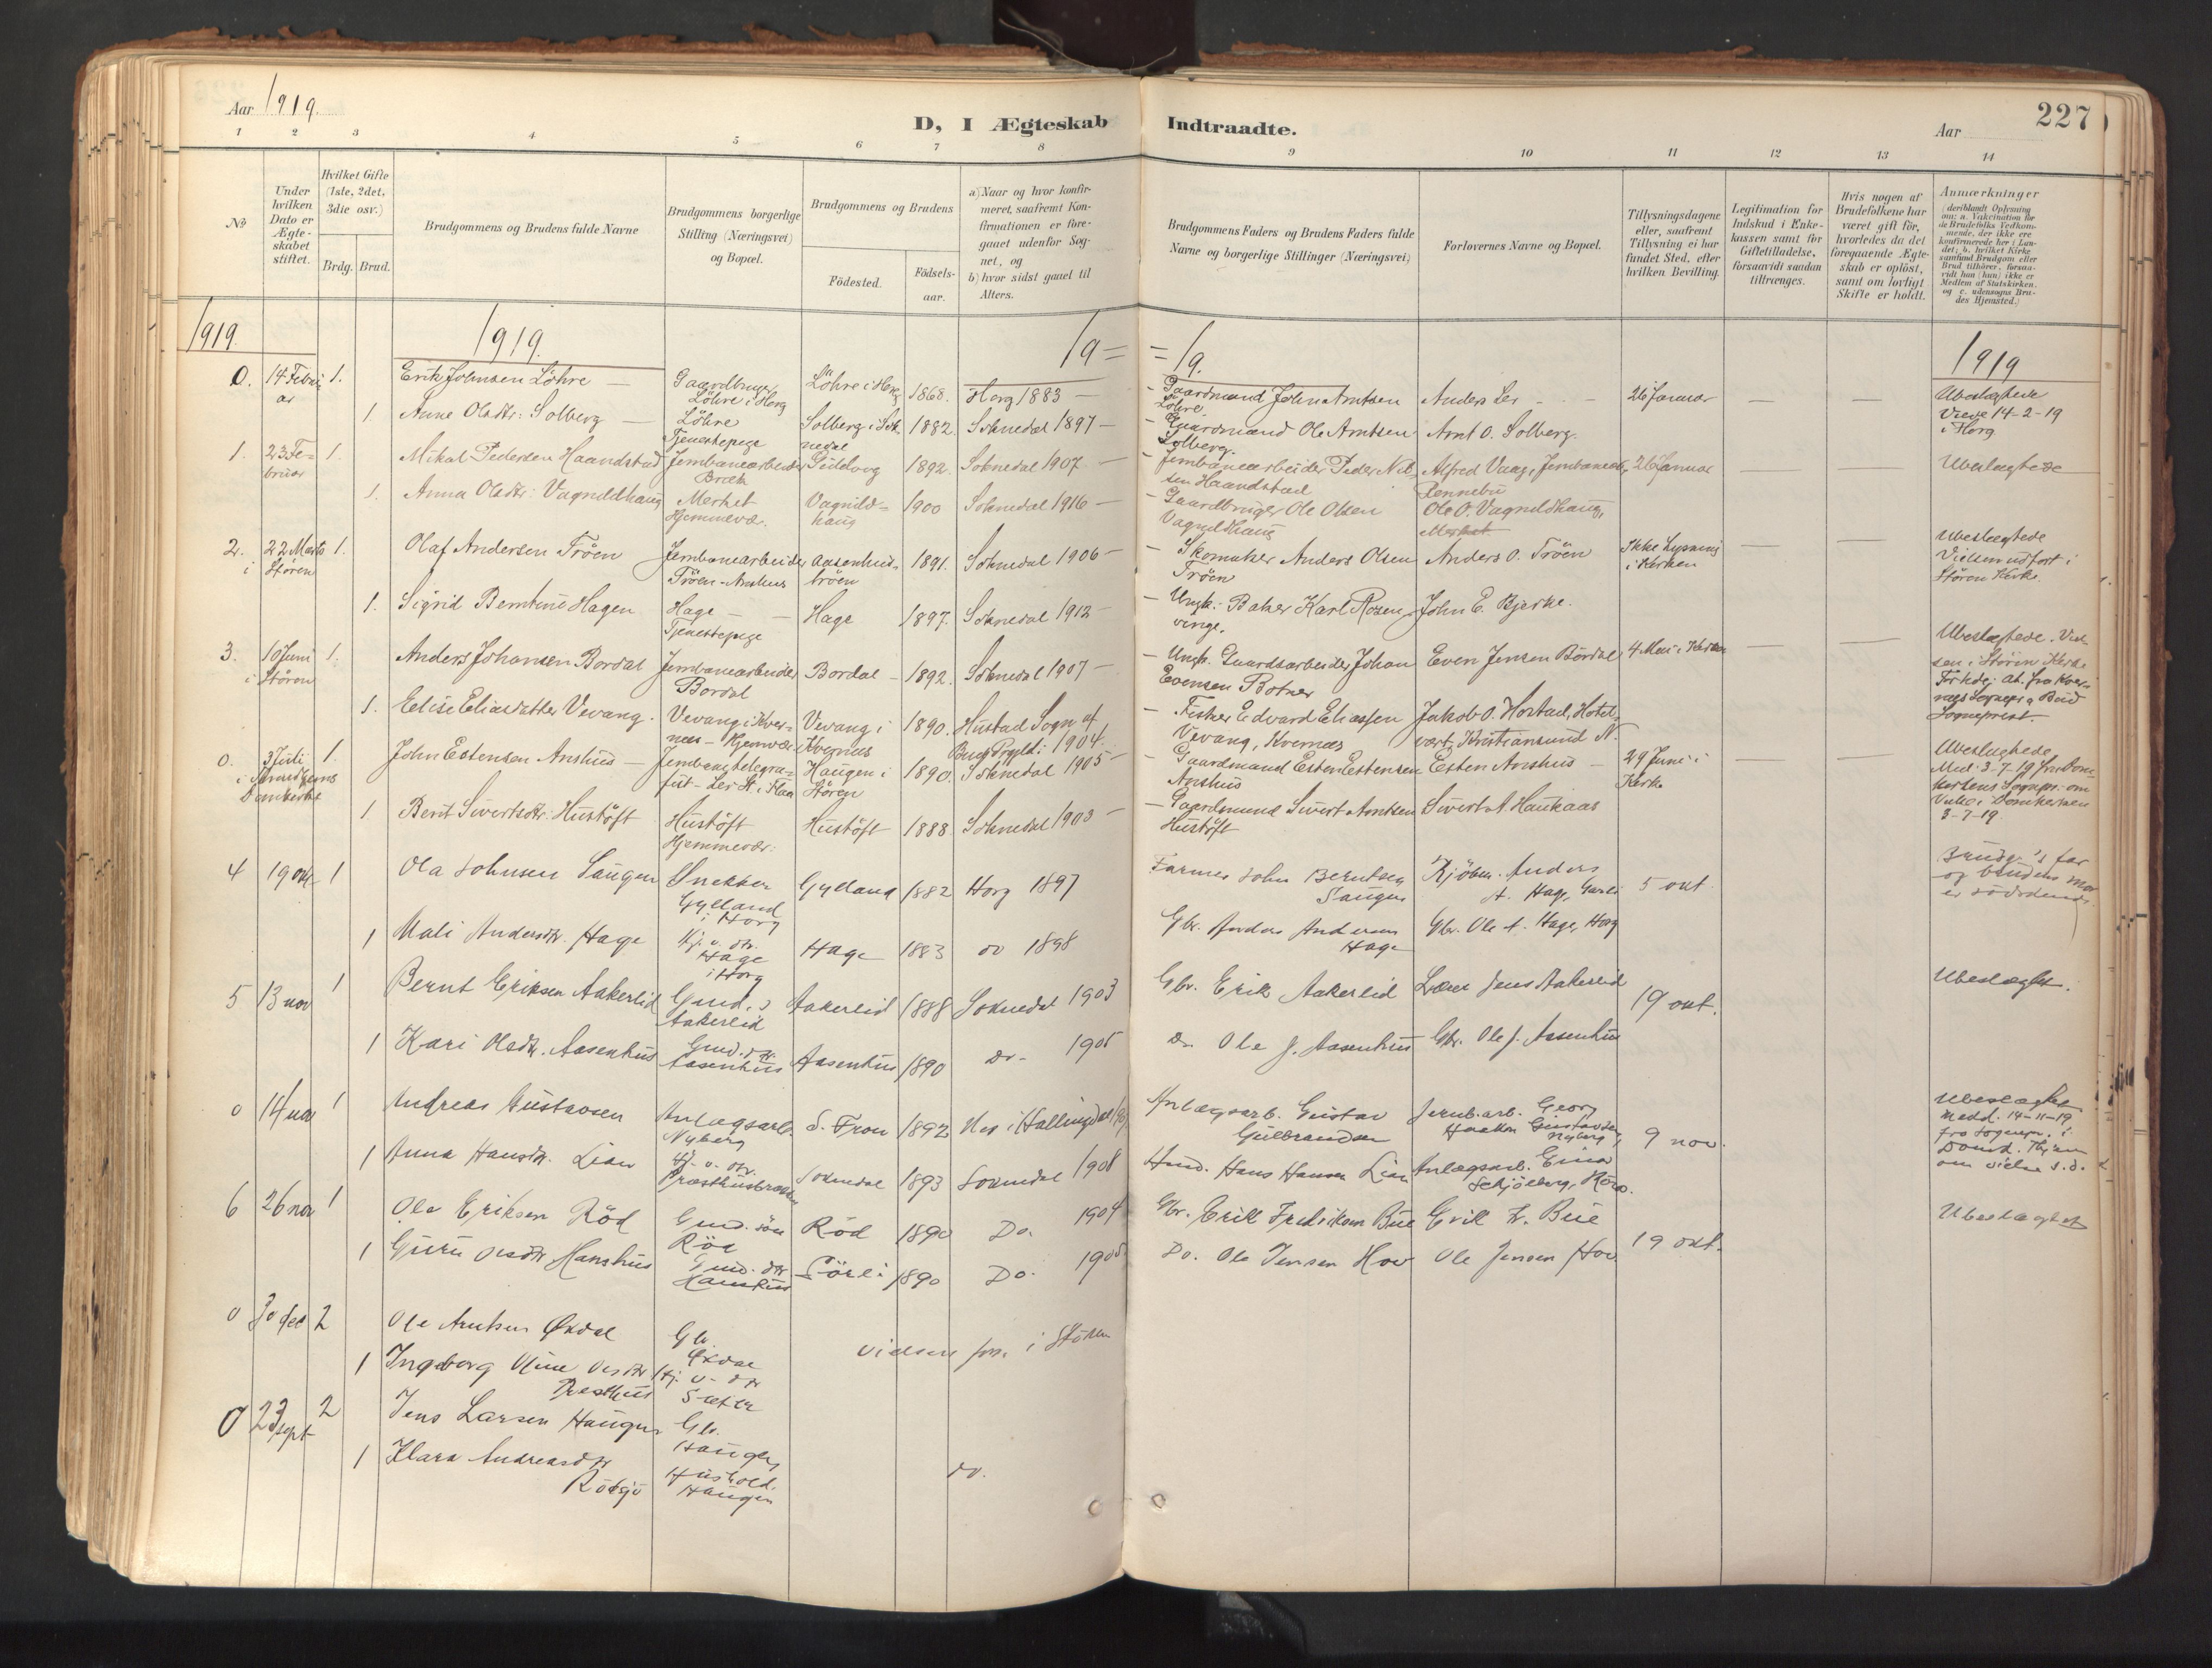 Aar 1919.
D, I Ægteskab Indtraadte.
Aar 227
1 2 3 4 5 6 7 8 9 10 11 12 13 14
№
Under hvilken Dato er Ægte-skabet stiftet.
Hvilket Gifte (1ste, 2det, 3die osv.)
Brdg. Brud.
Brudgommens og Brudens fulde Navne
Brudgommens borgerlige Stilling (Næringsvei) og Bopæl.
Brudgommens og Brudens
Fødested.
Fødsels-aar.
a) Naar og hvor konfir-meret, saafremt Kon-firmationen er fore-gaaet udenfor Sog-net, og b) hvor sidst gaaet til Alters.
Brudgommens Faders og Brudens Faders fulde Navne og borgerlige Stillinger (Næringsvei)
Forlovernes Navne og Bopæl.
Tillysningsdagene eller, saafremt Tillysning ei har fundet Sted, efter hvilken Bevilling.
Legitimation for Indskud i Enke-kassen samt for Giftetilladelse, forsaavidt saadan tiltrænges.
Hvis nogen af Brudefolkene har været gift før, hvorledes da det foregaaende Ægte-skab er opløst, samt om lovligt Skifte er holdt.
Anmærkninger (deriblandt Oplysning om: a. Vakcination for de Brudefolks Vedkom-mende, der ikke ere konfirmerede her i Lan-det; b. hvilket Kirke samfund Brudgom eller Brud tilhører, forsaa-vidt han (hun) ikke er Medlem af Statskirken, og c. udensogns Bru-des Hjemsted.)
1919. 1919. 19= =19. 1919
0. 14 Febru ar 1. Erik Johnsen Löhre — Gaardbruger Löhre i Horg Löhre i Horg 1868. Horg 1883 — Gaardmand John Arntsen Löhre. Anders Ler 26 Januar — — Ubeslægtede Viede 14-2-19 i Horg
1. Anne Olsdtr: Solberg — Löhre Tjenestepige Solberg i Sok-nedal 1882. Soknedal 1897 — Gaardmand Ole Arntsen Solberg. Arnt O. Solberg.
1. 23 Fe-bruar 1. Mikal Pedersen Haandstad Jernbanearbeider Bræk Gildevog 1892. Soknedal 1907. — Jernbanearbeider Peder Nil-sen Haandstad Alfred Vaag, Jernbanearb, Rennebu 26 Januar — — Ubeslægtede
1. Anna Olsdtr: Vagnildhaug Merket Hjemmevær. Vagnild-haug 1900 Soknedal 1916 — Gaardbruger Ole Olsen Vagnildhaug Ole O. Vagnildhaug, Merket
2. 22 Marts i Støren 1. Olaf Andersen Tröen Jernbanearbeider Tröen-Anshus Aasenhus-tröen 1891. Soknedal 1906 — Skomaker Anders Olsen Tröen Anders O. Tröen Ikke Lysning i Kirken Ubeslægtede Vielsen udført i Stören Kirke.
1. Sigrid Berntine Hagen Hage — Tjenestepige Hage 1897. Soknedal 1912 — Ungk: Baker Karl Rosen-vinge. John E. Bjerke.
3. 10 Juni i Støren 1. Anders Johansen Bordal Jernbanearbeider Bordal Bordal — 1892. Soknedal 1907 — Ungk. Gaardsarbeider Johan Evensen Botner Even Jensen Bördal 4 Mai i Kirken — Ubeslægtede. Viel-sen i Stören Kirke
1. Elise Eliasdatter Vevang. Vevang i Kver-nes – Hjemvær Vevang i Kvernes 1890. Hustad Sogn af Buds Prgjld: 1904. — Fisker Edvard Eliassen Vevang, Kvernes Jakob O. Hostad, Hotel-vært, Kristiansund N.
0. 3 Juli 1. John Estensen Anshus — Jernbanetelegra-fist – Ler St. i Flaa Haugen i Stören 1890. Soknedal 1905 — Gaardmand Esten Estensen Anshus Esten Anshus — 29 Juni i Kirke — — Ubeslægtede Med. 3-7-19 fra Dom-kirkens Sognepr. om Vielse i Domkirken 3-7-19
1. Berit Sivertsdtr: Hustöft Hustöft Hjemmevær: Hustöft 1888. Soknedal 1903 — Gaardmand Sivert Arntsen Hustöft Sivert A. Haukaas
4 19 okt 1 Ola Johnsen Saugen Snekker Gylland i Horg Gylland 1882 Horg 1897 Farmer John Berntsen Saugen Kjöbm. Anders A. Hage, 5 okt. Brudg.'s far og brudens mor er södskend
1 Mali Andersdtr. Hage Hj. v. dtr. Hage i Horg Hage 1883 do 1898 Gbr. Anders Andersen Hage Gbr. Ole A. Hage, Horg
5 13 nov 1 Bernt Eriksen Aakerlid Gmd. s Aakerlid Aakerlid 1888 Soknedal 1903 Gbr. Erik Aakerlid Lærer Jens Aakerlid 19 okt. Ubeslægtet.
1 Kari Olsdtr. Aasenhus Gmd. dtr. Aasenhus Aasenhus 1890 do- 1905 Do. Ole J. Aasenhus Gbr. Ole J. Aasenhus
0 14 nov 1 Andreas Gustavsen Anlægsarb. Nyberg S. Fron 1892 Nes i Hallingdal Anlægsarb. Gustav Gulbrandsen Jernb.arb. Georg Haakon Gustavsen Nyberg 9 nov. Ubeslægtet. Medd. 14-11-19 fra Sognepr. i Domk. Thjem om vielse s.d.
1 Anna Hansdtr. Lian Hj. v. dtr. Præsthusbrækken Soknedal 1893 Soknedal 1908 Hmd. Hans Hansen Lian Anlægsarb. Einar Schjölberg, Röros.
6 26 nov 1 Ole Eriksen Röd Gmd. sön Röd Röd 1890 Do. 1904 Gbr. Erik Fredriksen Bue Erik Fr. Bue 19 okt. Ubeslægtet
1 Guru Olsdtr Hanshus Gmd. dtr Hanshus Sörli 1890 Do. 1905 Do. Ole Jensen Hov Ole Jensen Hov
0 30 dec 2 Ole Arntsen Øxdal Gbr. Øxdal Vielsen i Stören
1 Ingeborg Oline Olsdtr Presthus Hj. v. dtr Sæter
0 23 sept 2 Jens Larsen Haugen Gbr. Haugen do.
1 Klara Andreasdtr Rödsjö Hushold. Haugen